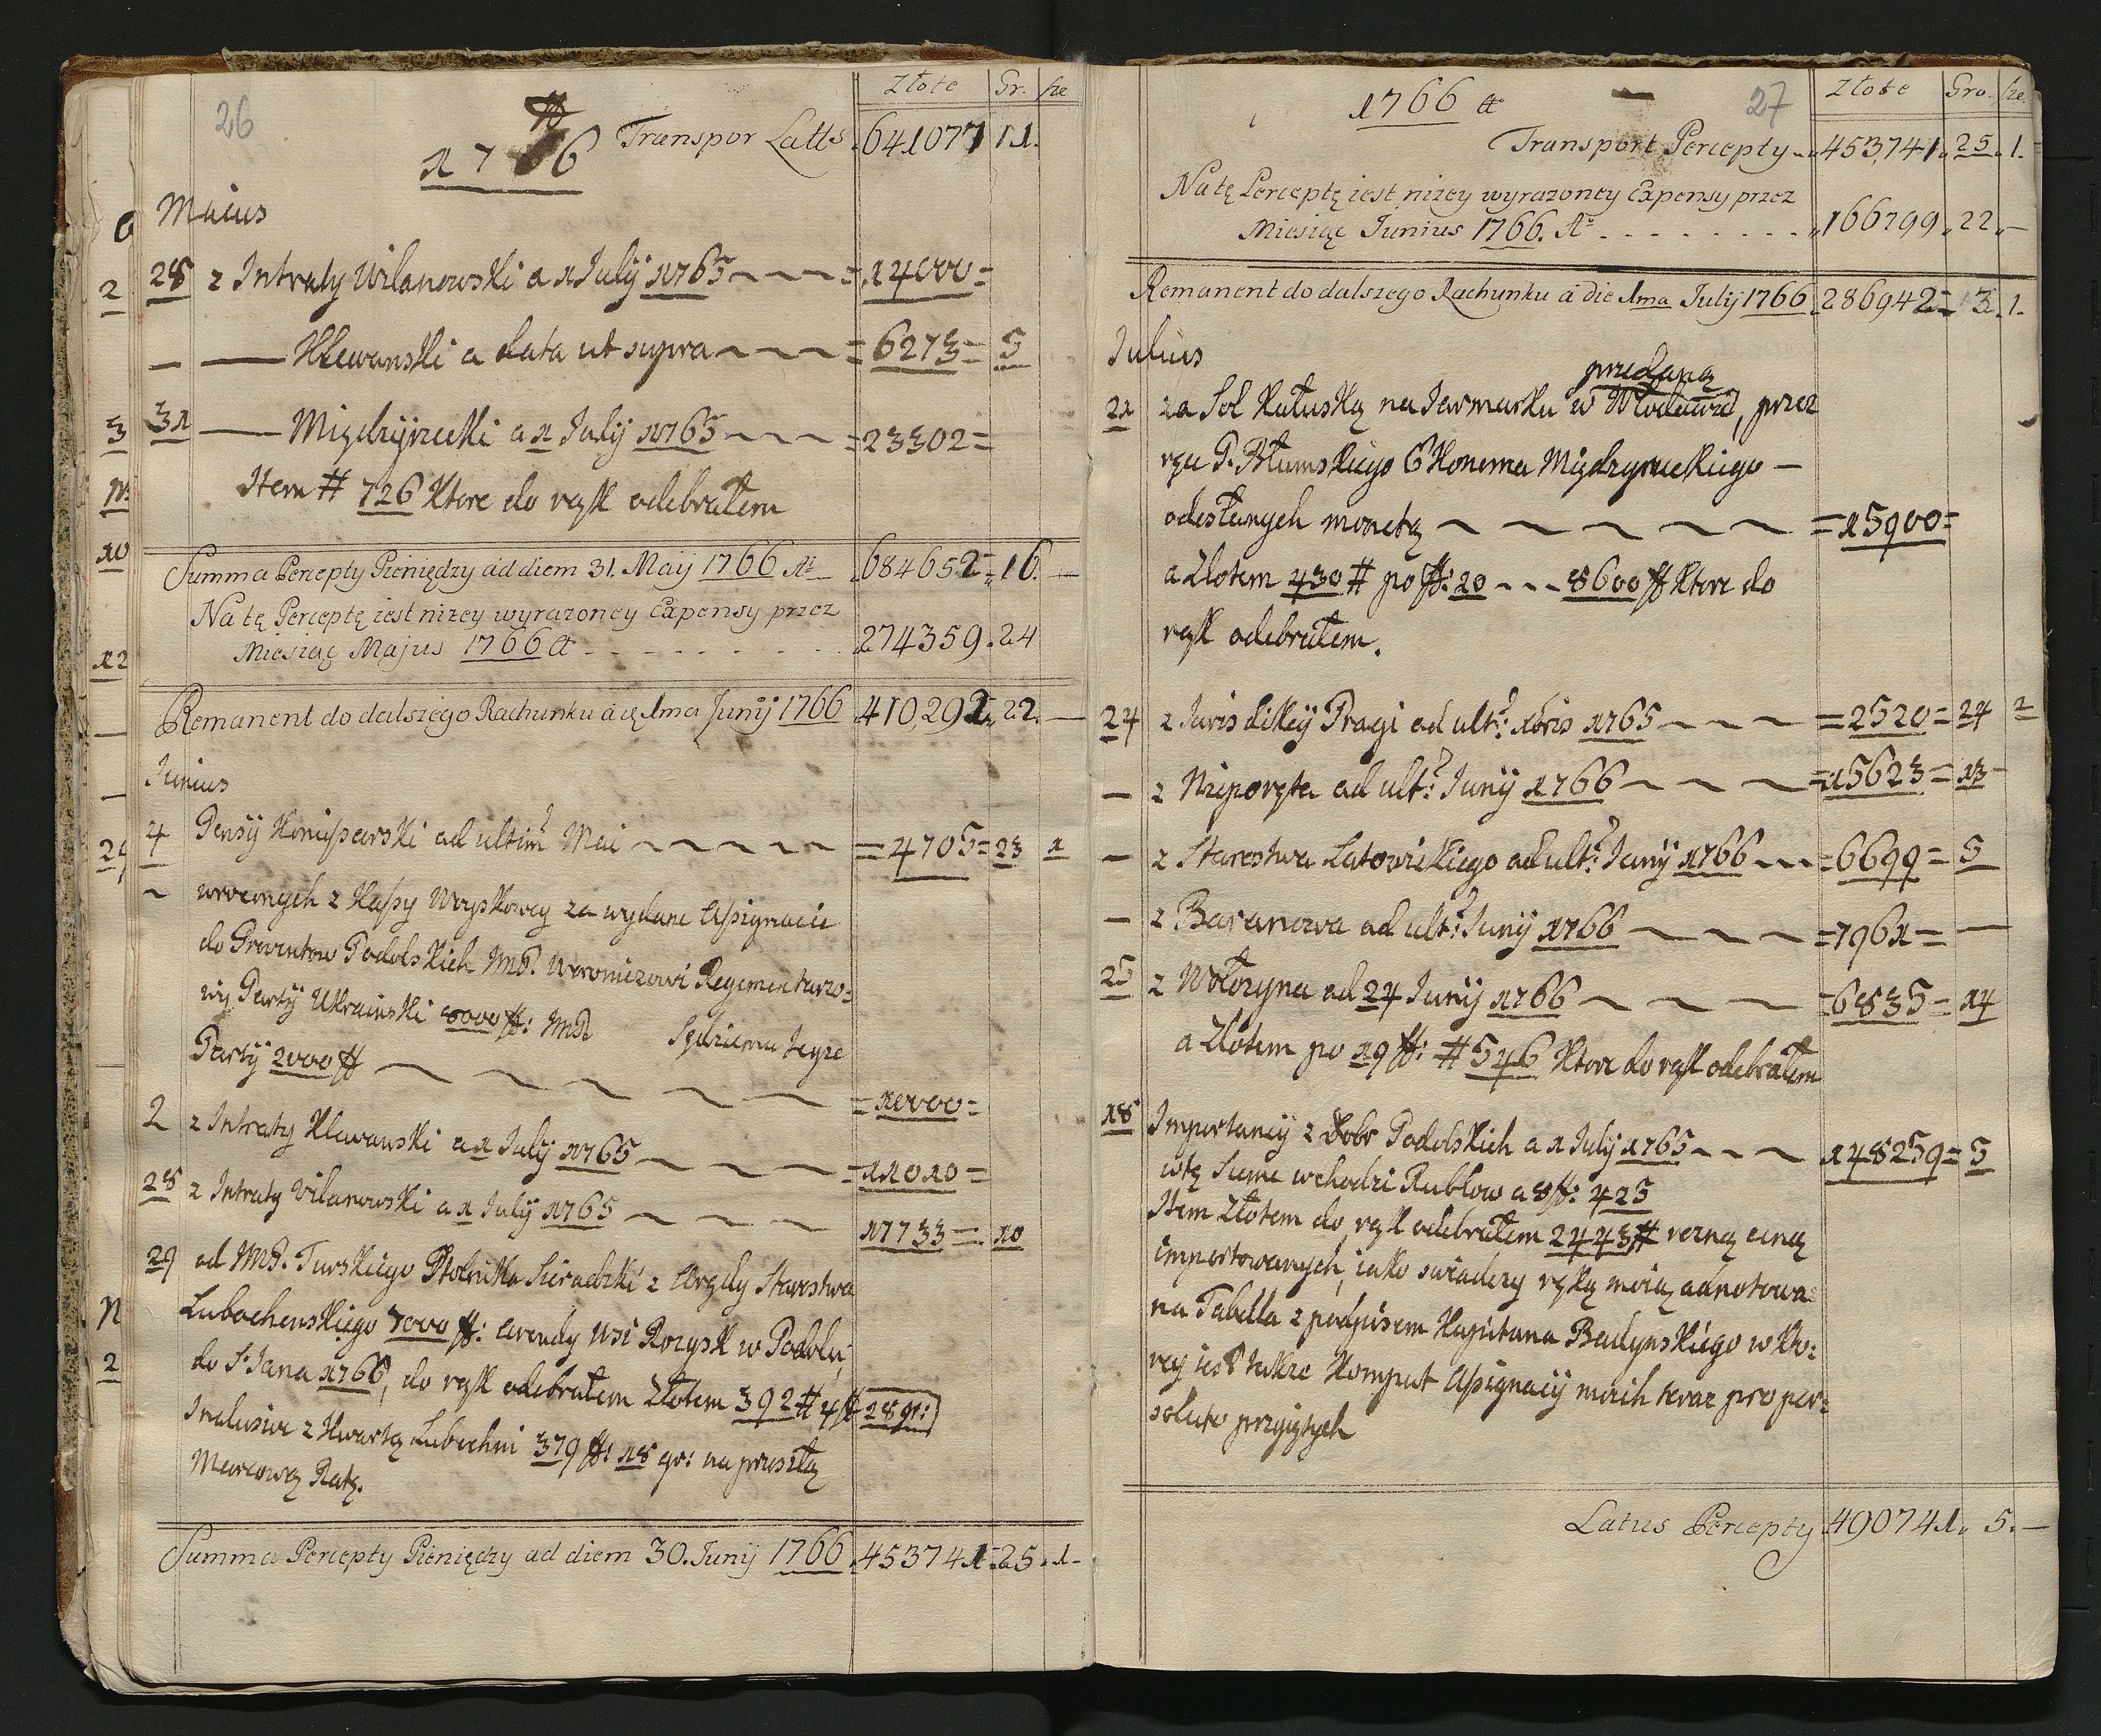 26
Złote Gr. sze
1766 Transpor Latts 641077 11.
Maius
28 z Intraty Wilanowski a 1 Julÿ 1765 = 14000 =
— — Klewanski a data ut supra = 6273 = 5
31 — Międzÿrzecki a 1 Julÿ 1765 = 23302 =
Item # 726 Ktore do rąk odebrałem
Summa Percepty Pieniędzy ad diem 31. Maij 1766 Ao 684652 = 16. —
Na tę Perceptę iest nizey wyrazoney Expensy przez
Miesiąc Majus 1766 274359. 24
Remanent do dalszego Rachunku a 1ma Junij 1766 410,292. 22. —
Junius
4 Pensÿi ad ultim Mai = 4705 = 23 1
~ wroconych z Kassy Woyskowey za wydane Assignacie
do Prowentow Podolskich Regimentarzo=
wi Partÿ Ukrainski 8000 ff: Sędziemu teyze
Partÿ 2000 ff = 10000 =
2 z Intraty Klewanski a 1 Julÿ 1765 = 11010 =
28 z Intraty Vilanowski a 1 Julÿ 1765 17733 = 10
29 od Turskiego Stolnika Sieradzki z Arędy Starostwa
Lubochenskiego 7000 ff: arendy wsi Rozysk w Podolu
do S. Jana 1766, do rąk odebrałem Złotem 392 # 4 ff 28 gr:
Inclusive z Kwartą Lubochni 379 ff: 18 gr: na przeszłą
Marcową Ratę.
Summa Percepty Pieniędzy ad diem 30. Junij 1766 453741 = 25. 1 -
27
Złote Gro. sze.
1766
Transport Percepty 453,741. 25. 1.
Na tę Perceptę iest nizey wyrazoney Expensy przez
Miesiąc Junius 1766. Ao 166799. 22. —
Remanent do dalszego Rachunku a die 1ma Julij 1766 286942 = 3. 1.
Julius
przedaną
21 za Sol Kałuską na Jarmarku w Włodawie, przez
ręce P. Błumskiego Ekonoma Międzyrzeckiego —
odesłanych monetą = 15900 =
a Złotem 430 # po ff: 20 - - - 8600 ff Ktore do
rąk odebrałem.
24 z Juris dikcÿ Pragi ad ult: xbris 1765 = 2520 = 24 2
— z Nieporęta ad ult: Junÿ 1766 = 15623 = 13 -
— z Starostwa Latowickiego ad ult: Junÿ 1766 = 6699 = 5
— z Baranowa ad ult: Junÿ 1766 = 7961 = —
25 z Wołozyna ad 24 Junÿ 1766 = 6835 = 14
a Złotem po 19 ff: # 546 Ktore do rąk odebrałem
18 Importancÿ z Dobr Podolskich a 1 Julÿ 1765 148259 = 5
w tę Sume wchodzi Rublow a 8 ff: 425
Item Złotem do rąk odebrałem 2443 # rozną ceną
importowanych, iako swiadczy ręką moią adnotowa=
na Tabella z podpisem Kapitana Badynskiego w kto=
rey iest takze Komput Assignacÿ moich teraz pro per=
soluto przyiętych
Latus Percepty 490741. 5. —